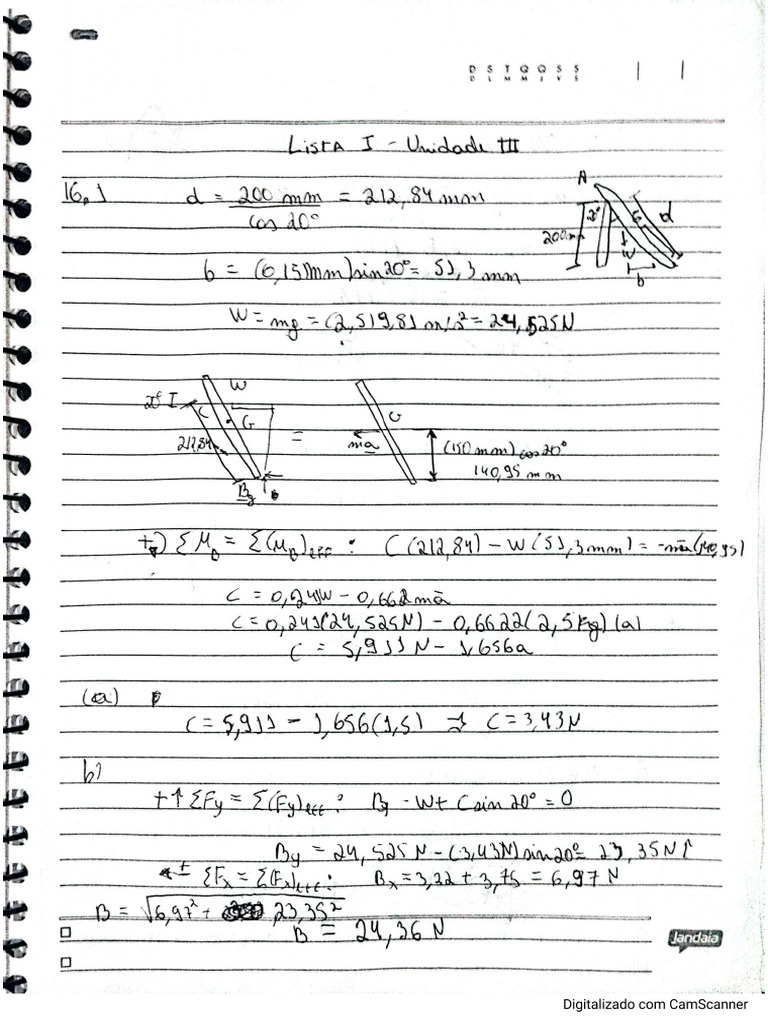 D S T Q Q S S
D L M M J V S
Lista I - Unidade III
16.1 d = 200 mm / cos 20° = 212,84 mm
A
20°
d
G
200 mm
W
b
b = (0,150mm) sin 20° = 51,3 mm
W = mg = (2,5)9,81 m/s² = 24,525N
20° C W
G
212,84
=
G
mā
(150 mm) cos 20°
140,95 mm
B
+ Σ M_B = Σ(M_B)eff : C (212,84) - W (51,3 mm) = -mā(140,95)
C = 0,241W - 0,662mā
C = 0,241(24,525N) - 0,6622(2,5 Kg)(a)
C = 5,911 N - 1,656a
(a)
C = 5,911 - 1,656(1,5) ⇒ C = 3,43 N
b)
+↑ ΣFy = Σ(Fy)eff : By - W + C sin 20° = 0
By = 24,525 N - (3,43N) sin 20° = 23,35N ↑
← + ΣFx = Σ(Fx)eff : Bx = 3,22 + 3,75 = 6,97 N
B = √6,97² + 23,35²
B = 24,36 N
Jandaia
Digitalizado com CamScanner